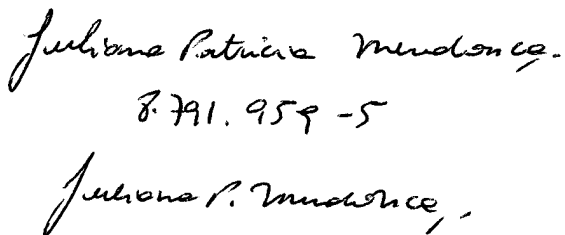 Juliana Patricia Mendonça.
8.791.959-5
Juliana P. Mendonça,